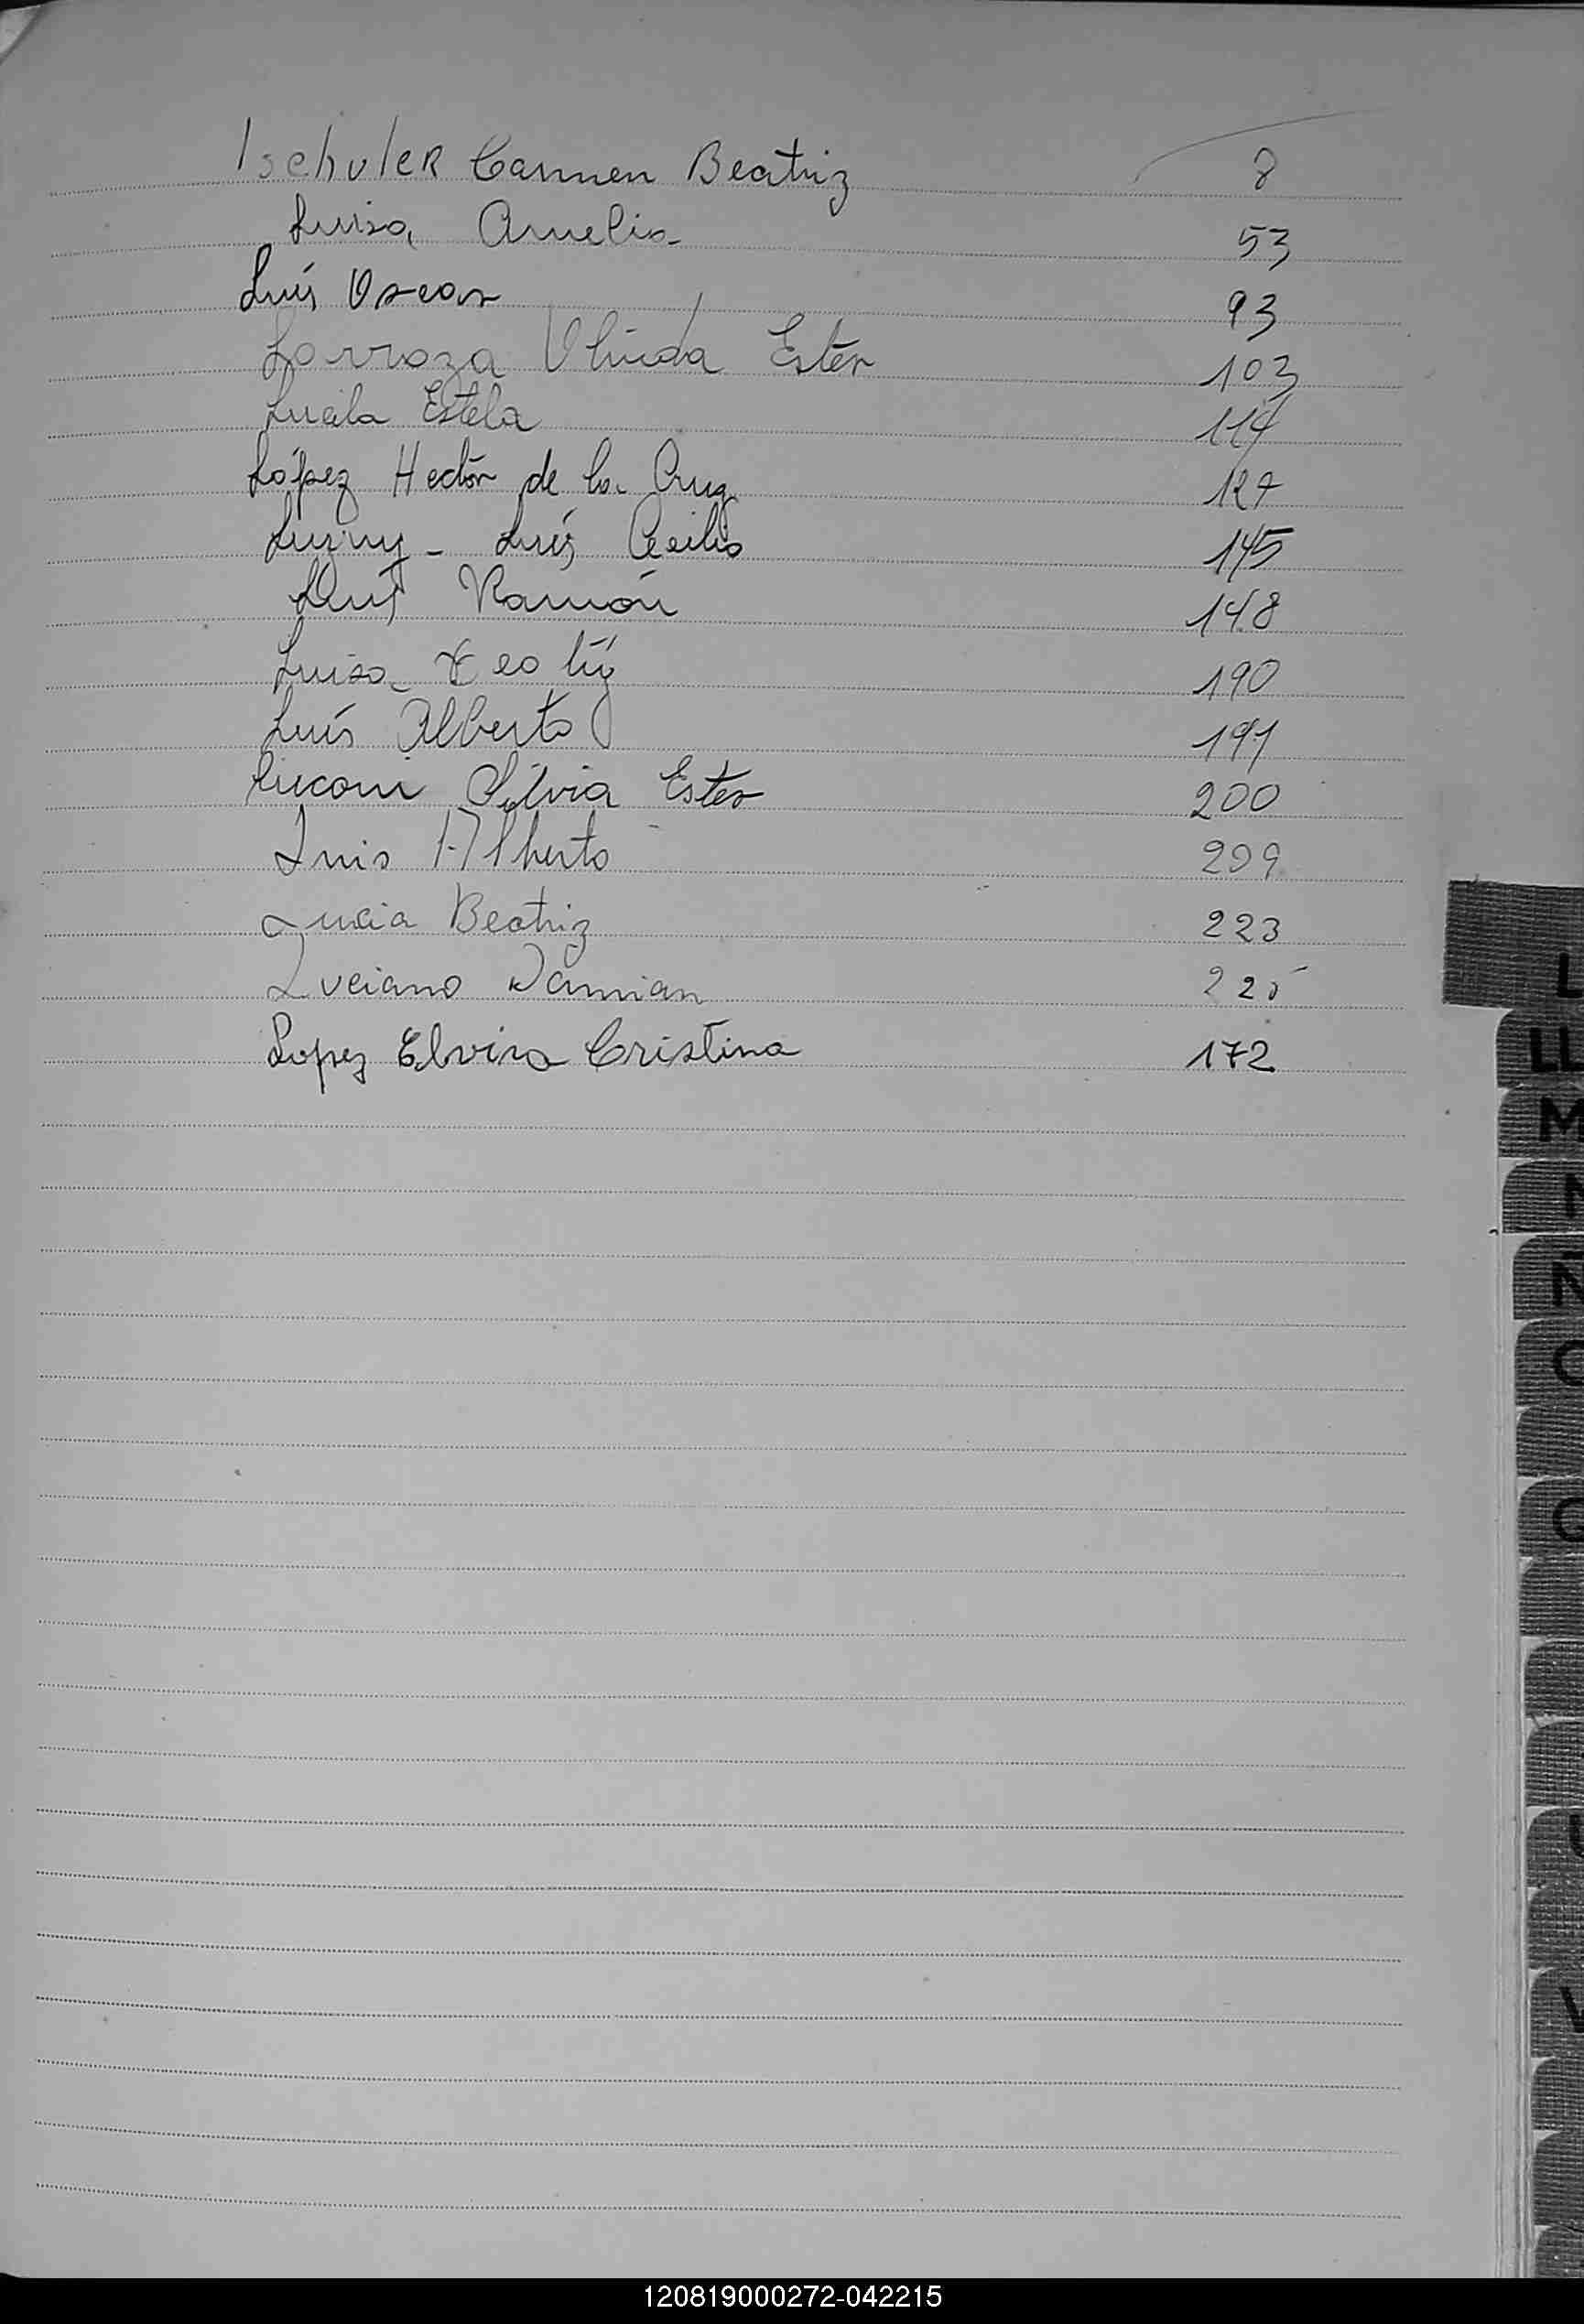 Ischuler Carmen Beatriz 8
Luisa Amelia 53
Luis Oscar 93
Larroza Olinda Ester 103
Lucila Estela 114
López Hector de la Cruz 127
Luis Cecilio 145
Luis Ramón 148
Luisa 190
Luís Alberto 191
Silvia Ester 200
Luis Alberto 209
Lucia Beatriz 223
Luciano Damian 225
Lopez Elvira Cristina 172
L
LL
M
N
Ñ
O
Q
U
V
120819000272-042215